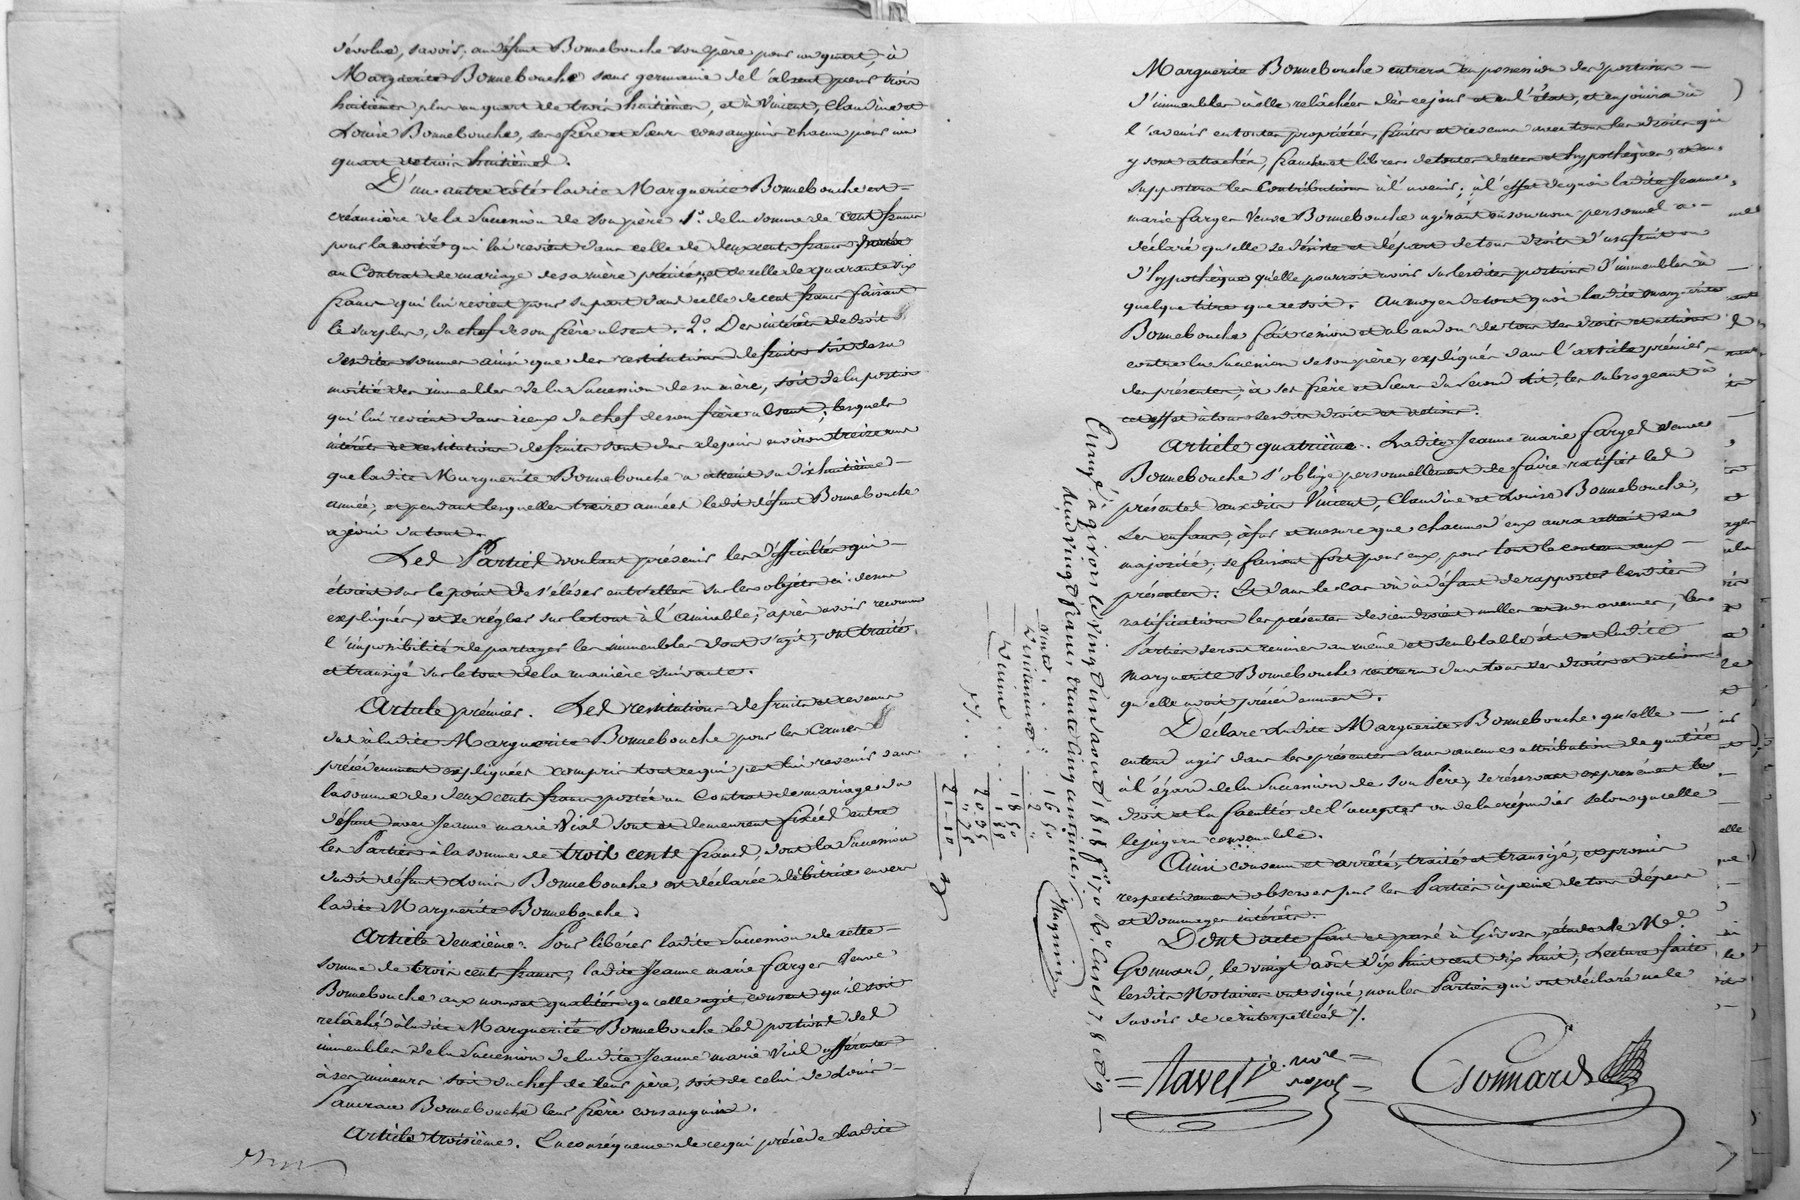 dévolue, savoir, au défunt Bonnebouche son père pour un quart, à
Marguerite Bonnebouche sœur germaine de l'absent pour trois
huitièmes plus un quart de trois huitièmes, et à Vincent, Claudine et
Louise Bonnebouche, ses frère et sœurs consanguins chacun pour un
quart de trois huitièmes.
D'un autre côté ladite Marguerite Bonnebouche est
créancière de la Succession de son père 1.° de la somme de cent francs
pour la moitié qui lui revient dans celle de deux cents francs portée
au Contrat de mariage de sa mère précité, et de celle de quarante six
francs qui lui revient pour sa part dans celle de cent francs faisant
le surplus, du chef de son frère absent. 2.° Des intérêts de droit
desdites sommes ainsi que des restitutions de fruits soit de sa
moitié des immeubles de la Succession de sa mère, soit de la portion
qui lui revient dans iceux du chef de son frère absent, lesquels
intérêts et restitutions de fruits sont dus depuis environ treize ans
que ladite Marguerite Bonnebouche a atteint sa dix huitième
année, et pendant lesquelles treize années ledit défunt Bonnebouche
a joui du tout.
Les Parties voulant prévenir les difficultés qui
étoient sur le point de s'élever entr'elles sur les objets ci-dessus
expliqués, et se régler sur le tout à l'amiable, après avoir reconnu
l'impossibilité de partager les immeubles dont s'agit, ont traité
et transigé sur le tout de la manière suivante.
Article prémier. Les restitutions de fruits et revenus
dus à ladite Marguerite Bonnebouche pour les Causes
précédemment expliquées compris tout ce qui peut lui revenir dans
la somme de deux cents francs portée au Contrat de mariage du
défunt avec Jeanne marie Vial sont et demeurent fixées entre
les Parties à la somme de trois cents francs, dont la Succession
dudit défunt Louis Bonnebouche est déclarée débitrice envers
ladite Marguerite Bonnebouche.
Article deuxième. Pour libérer ladite Succession de cette
somme de trois cents francs, ladite Jeanne marie farges Veuve
Bonnebouche aux noms et qualités qu'elle agit, consent qu'il soit
relâché à ladite Marguerite Bonnebouche les portions des
immeubles de la Succession de ladite Jeanne marie Vial afférentes
à ses mineurs soit du chef de leur père, soit de celui de Louis
Bonnebouche leur frère consanguin.
Article troisième. En conséquence de ce qui précède ladite
Marguerite Bonnebouche entrera en possession des portions
d'immeubles à elle relâchées dès ce jour et en l'état, et en jouira à
l'avenir en toutes propriétés, fruits et revenus avec tous les droits qui
y sont attachés, franches et libres de toutes dettes et hypothèques, et en
supportera les Contributions à l'avenir; à l'effet de quoi ladite Jeanne
marie farges Veuve Bonnebouche agissant en son nom personnel a
déclaré qu'elle se désiste et départ de tous droits d'usufruit ou
d'hypothèque qu'elle pourroit avoir sur lesdites portions d'immeubles à
quelque titre que ce soit. Au moyen de tout quoi ladite marguerite
Bonnebouche fait cession et abandon de tous ses droits et actions
contre la Succession de son père, expliqués dans l'article prémier
des présentes, à ses frère et sœurs du second lit, les subrogeant à
cet effet à tous sesdits droits et actions.
Article quatrième. Ladite Jeanne marie farges Veuve
Bonnebouche s'oblige personnellement de faire ratifier les
présentes auxdits Vincent, Claudine et Louise Bonnebouche,
ses enfans, à fur et mesure que chacun d'eux aura atteint sa
majorité, se faisant fort pour eux, pour tout le contenu aux
présentes. Et dans le cas où à défaut de rapporter lesdites
ratifications les présentes deviendroient nulles et non avenues, les
Parties seront remises au même et semblable état et ladite
Marguerite Bonnebouche rentrera dans tous ses droits et actions
qu'elle avoit précédemment.
Déclare ladite Marguerite Bonnebouche qu'elle
entend agir dans les présentes sans aucunes attribution de qualité
à l'égard de la Succession de son Père, se réservant expressément le
droit et la faculté de l'accepter ou de la répudier selon qu'elle
le jugera convenable.
Ainsi convenu et arrêté, traité et transigé, et promis
respectivement observer par les Parties à peine de tous dépens
et dommages intérêts.
Dont acte fait et passé à Givors, étude de M.e
Gonnard, le vingt août dix huit cent dix huit, Lecture faite
lesdits Notaires ont signé, non les Parties qui ont déclaré ne le
savoir de ce interpellées /.
Navet
Gonnard
Enregé à givors le vingt un août 1818 f° 170 R° Cases 7, 8 et 9
reçu vingt francs trente cinq centimes
16 50
2 "
18 50
1 85
20 35
" 75
21 - 10